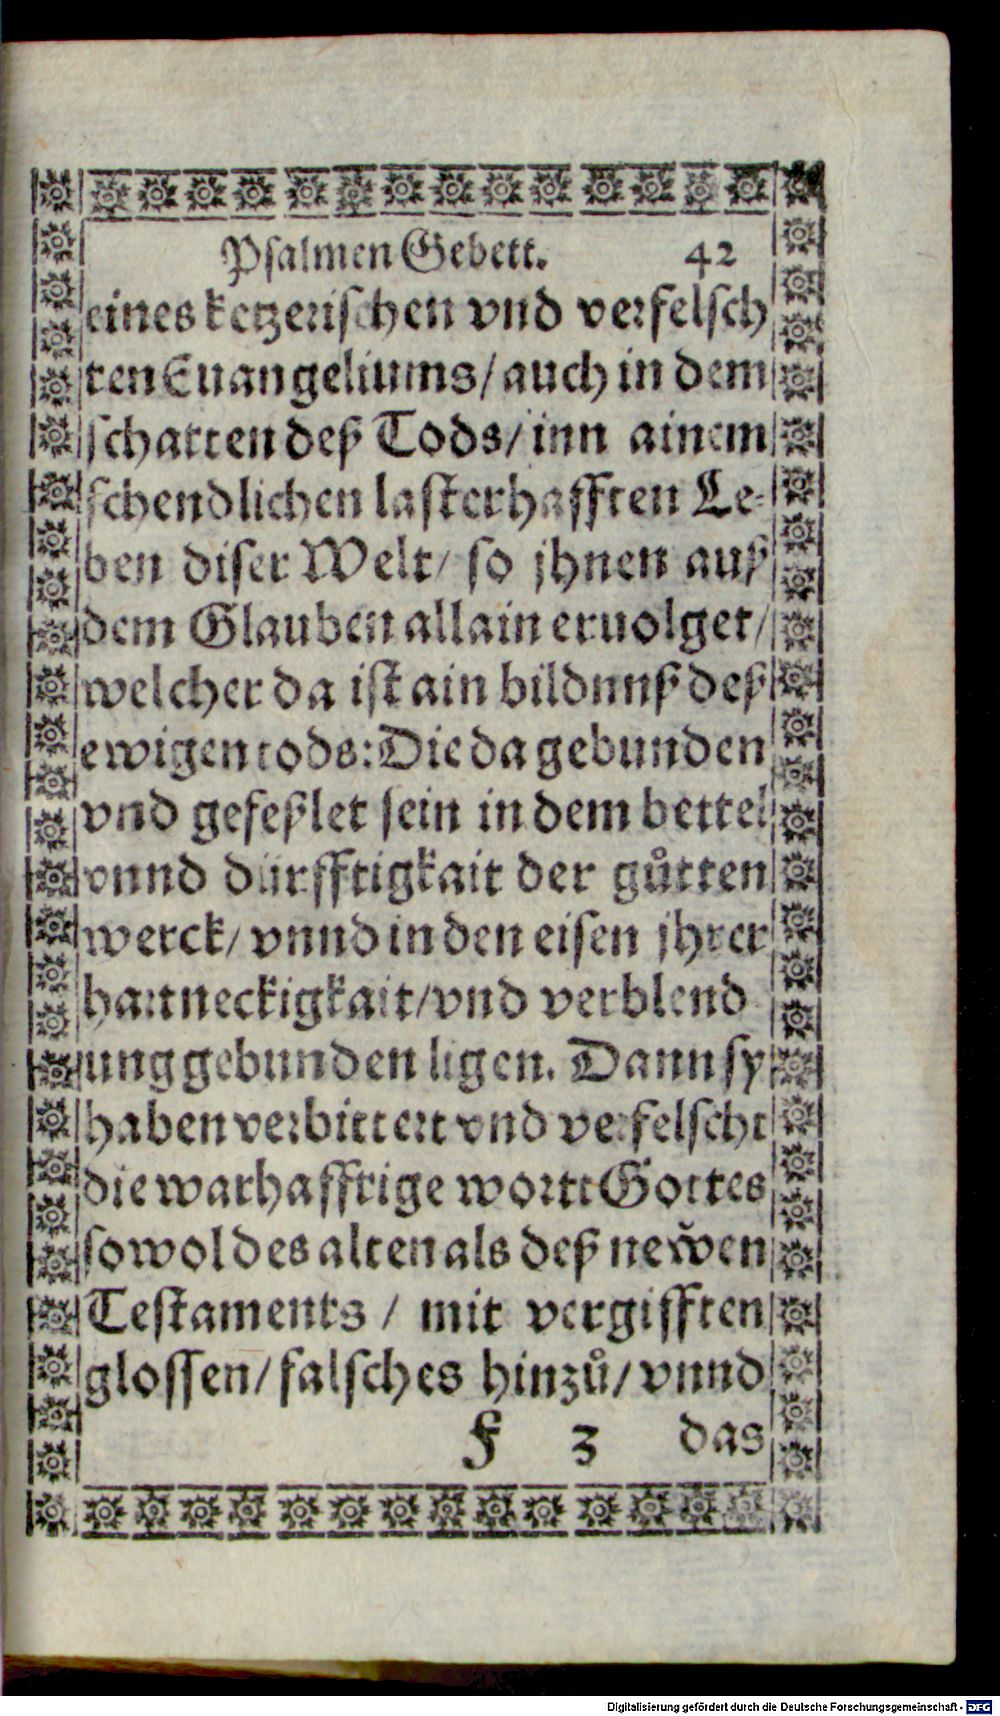 Psalmen Gebett. 42
eines ketzerischen vnd verfelsch
ten Euangeliums/ auch in dem
schatten deß Tods/ inn ainem
schendlichen lasterhafften Le-
ben diser Welt/ so jhnen auß
dem Glauben allain eruolget/
welcher da ist ain bildnuß deß
ewigen tods: Die da gebunden
vnd gefeßlet sein in dem bettel
vnnd dürfftigkait der gůtten
werck/ vnnd in den eisen jhrer
hartneckigkait/ vnd verblend
ung gebunden ligen. Dann sy
haben verbittert vnd verfelscht
die warhafftige wortt Gottes
sowol des alten als deß newen
Testaments / mit vergifften
glossen/ falsches hinzů/ vnnd
F 3 das
Digitalisierung gefördert durch die Deutsche Forschungsgemeinschaft - DFG